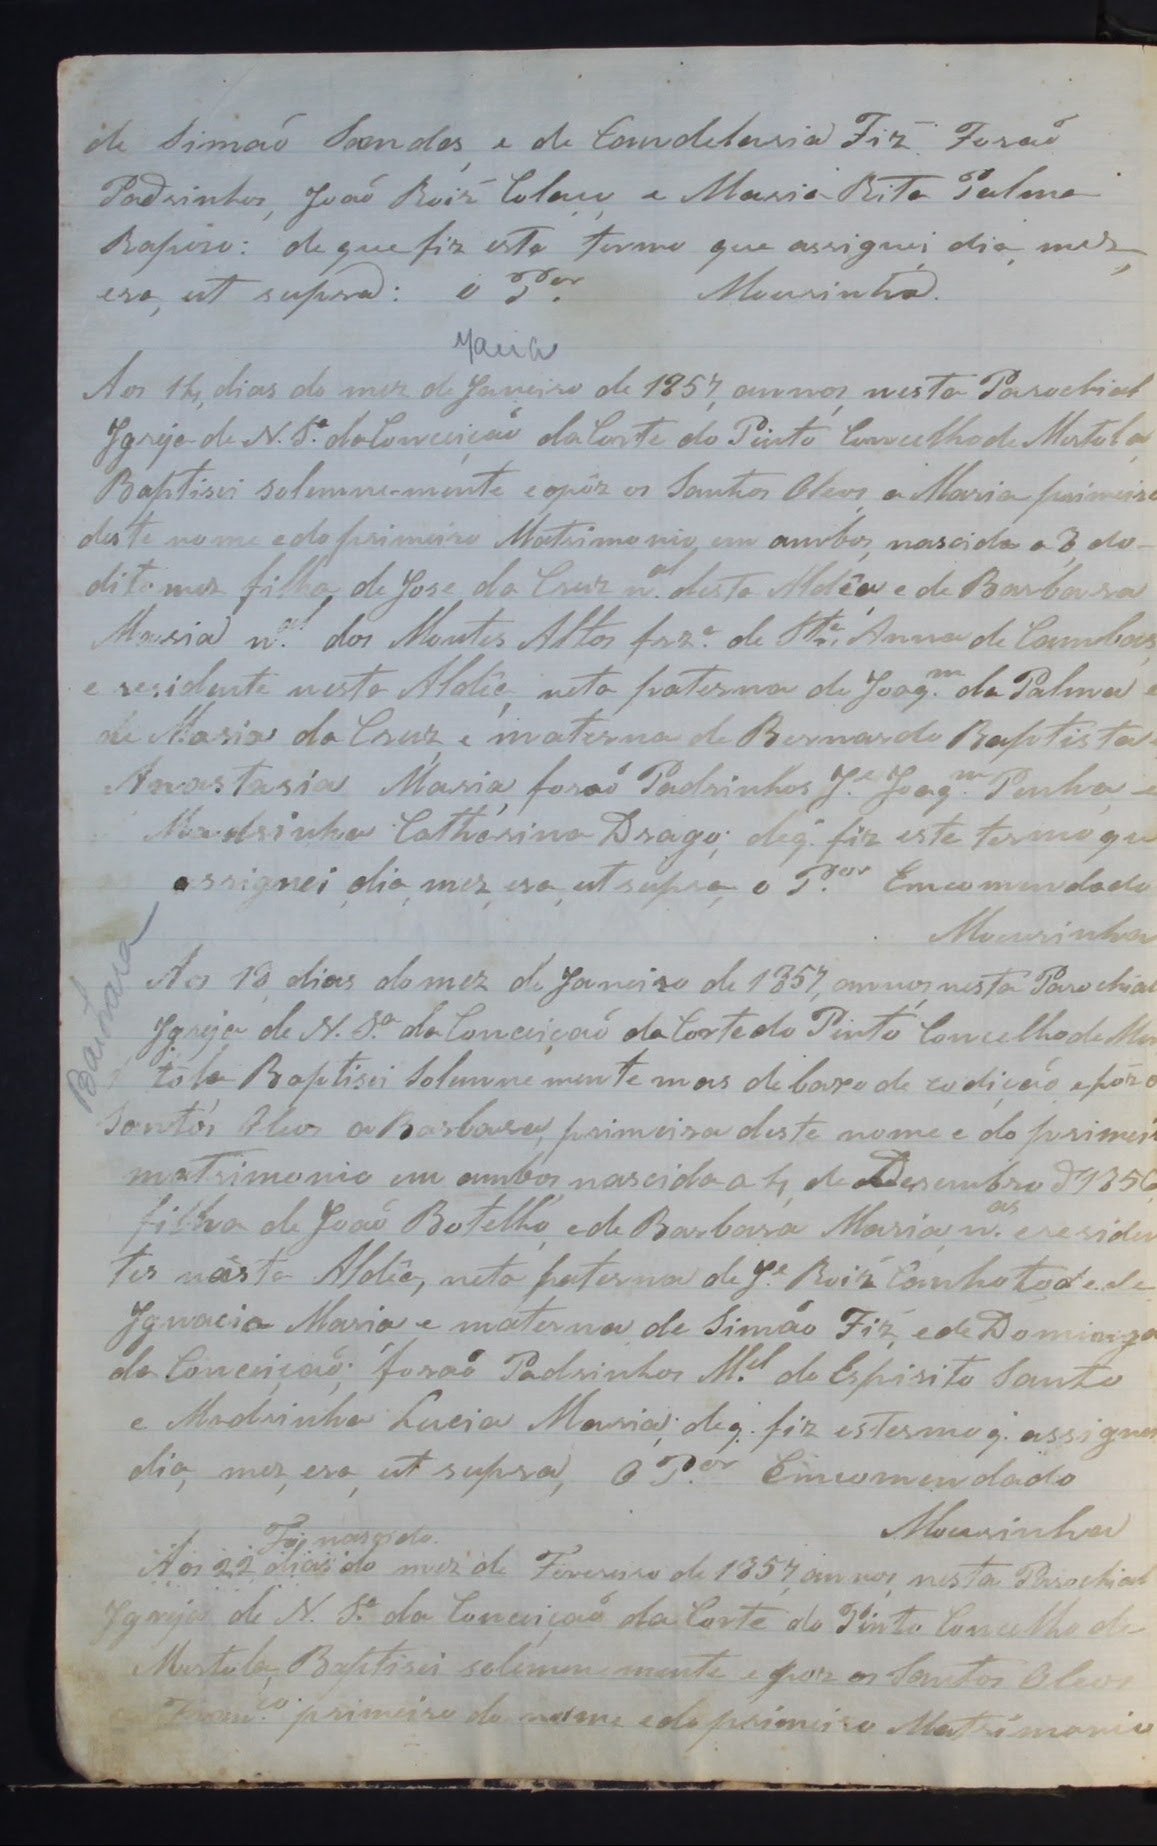 de Simaõ Sandes, e de Candelaria Fiz Foraõ
Padrinhos, Joaõ Roiz Colaço, e Maria Rita Palma
Raposo: de que fiz este termo que assignei, dia, mez,
era, ut supra: o P.or Mousinho.
Maria
Aos 14, dias do mez de Janeiro de 1857, annos, nesta Parochial
Igreja de N. S.ª da Conceiçaõ da Corte do Pinto Concelho de Mertola,
Baptisei solemne-mente e apôz os Santos Oleos, a Maria primeira
deste nome e do primeiro Matrimonio, em ambos, nascida a 3, do-
dito mez, filha, de Jose da Cruz n.al desta Aldêa, e de Barbara
Maria n.al dos Montes Altos frz.ª de St.ª Anna de Cambas,
e residente nesta Aldêa, neta paterna de Joaq.m da Palma e
de Maria da Cruz, e materna de Bernardo Baptista,
Anastasia Maria, foraõ Padrinhos J.e Joaq.m Penha, e
Madrinha Catharina Drago; de q. fiz este termo que
assignei, dia, mez, era, ut supra, o P.or Emcomendado
Mousinho
Barbara
Aos 18, dias do mez de Janeiro de 1857, annos, nesta Parochial
Igreja de N. S.ª da Conceiçaõ da Corte do Pinto Concelho de Mer
tola Baptisei Solemnemente mas debaxo de codiçaõ e pôz o
Santos Oleos a Barbara, primeira deste nome e do primeir
matrimonio em ambos nascida a 4, de Desembro d 1856,
filha de Joaõ Botelho, e de Barbara Maria, n.as e residen
tes nesta Aldêa, neta paterna de J.e Roiz Canhoto, e de
Ignacia Maria e materna de Simão Fiz, e de Dominga
da Conceiçaõ; foraõ Padrinhos M.el do Espirito Santo
e Madrinha Lucia Maria; de q. fiz estermo q. assignei
dia, mez, era, ut supra, O P.or Emcomendado
Mousinho
Foi nascido.
Aos 22 dias do mez de Fevereiro de 1857, annos, nesta Parochial
Igreja de N. S.ª da Conceiçaõ da Corte do Pinto Concelho de
Mertola, Baptisei solemnemente e poz os Santos Oleos
Fran.co primeiro do nome e do primeiro Matrimonio